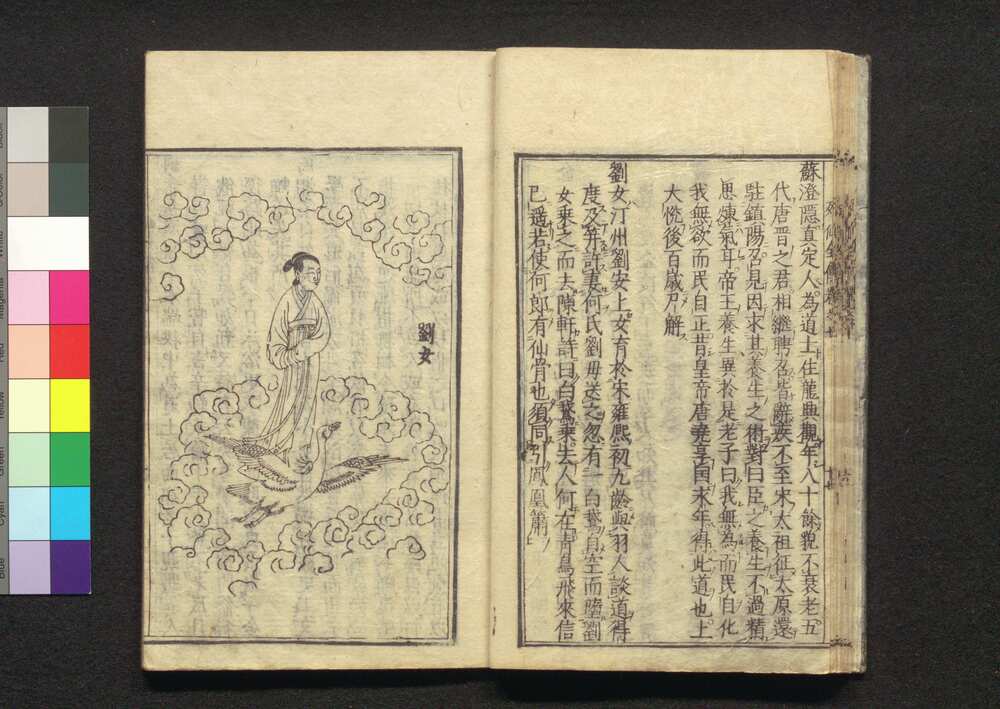 蘇澄隱真定人為道士住龍興觀年八十餘貌不衰老五
代唐晋之君相繼聘召皆辭疾不至宋太祖征太原還
駐鎮陽召見因求其養生之術對曰臣之養生不過精
思煉氣耳帝王養生異於是老子曰我無為而民自化
我無欲而民自正昔皇帝唐堯享國永年得此道也上
大悅後百歲尸解
劉女汀州劉安上女育於宋雍熙初九齡與羽人談道得
度及笄許妻何氏劉母送之忽有一白鵝自空而墮劉
女乘之而去陳軒詩曰白鵝乘去人何在青鳥飛來信
已遥若使何郎有仙骨也須同引鳳凰簫
劉女